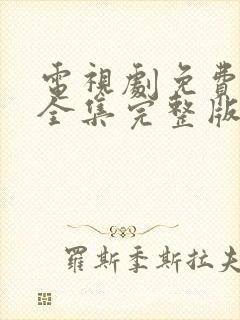 電視劇免費
全集完整版
羅斯季斯拉夫